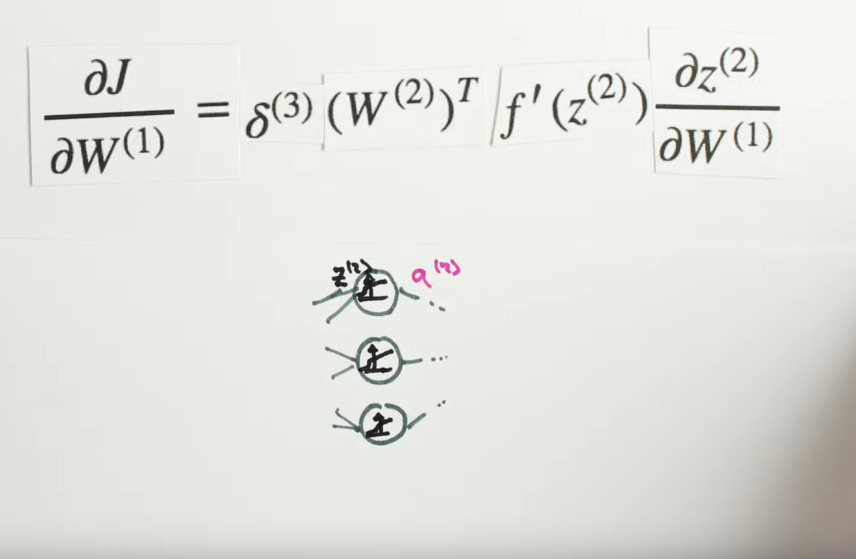 ∂J/∂W⁽¹⁾ = δ⁽³⁾ (W⁽²⁾)ᵀ f′(z⁽²⁾) ∂z⁽²⁾/∂W⁽¹⁾
z⁽²⁾ a⁽²⁾